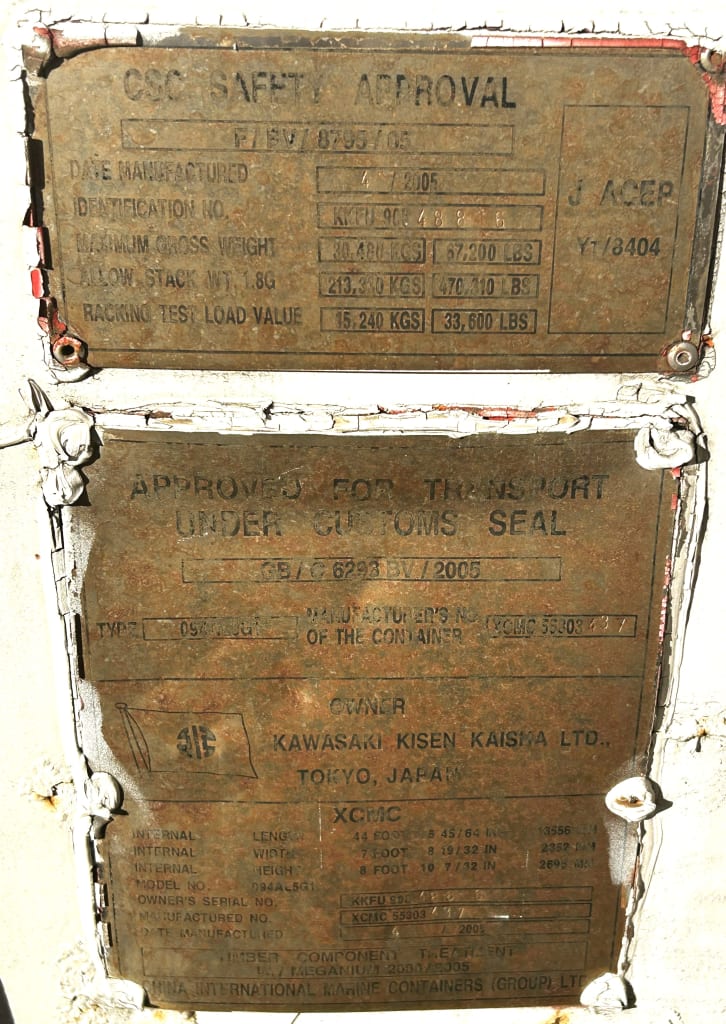 CSC SAFETY APPROVAL
F / BV / 8795 / 05
DATE MANUFACTURED 4 / 2005
IDENTIFICATION NO. KKFU 908 48816
MAXIMUM GROSS WEIGHT 30,480 KGS 67,200 LBS
ALLOW. STACK WT. 1.8G 213,360 KGS 470,310 LBS
RACKING TEST LOAD VALUE 15,240 KGS 33,600 LBS
J ACEP
YT/8404
APPROVED FOR TRANSPORT
UNDER CUSTOMS SEAL
GB / C 6293 BV / 2005
TYPE MANUFACTURER'S NO. OF THE CONTAINER XCMC 55303
OWNER
KAWASAKI KISEN KAISHA LTD.,
TOKYO, JAPAN
XCMC
INTERNAL LENGTH 44 FOOT 5 45/64 IN 13556 MM
INTERNAL WIDTH 7 FOOT 8 19/32 IN 2352 MM
INTERNAL HEIGHT 8 FOOT 10 7/32 IN 2698 MM
MODEL NO.
OWNER'S SERIAL NO. KKFU 908
MANUFACTURED NO. XCMC 55303
DATE MANUFACTURED 4 / 2005
TIMBER COMPONENT TREATMENT
IM / MEGANIUM 2000 / 2005
CHINA INTERNATIONAL MARINE CONTAINERS (GROUP) LTD